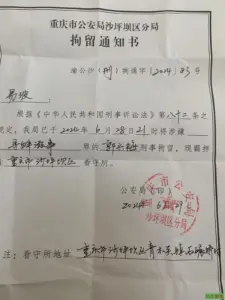 重庆市公安局沙坪坝区分局
拘留通知书
渝公沙(刑)拘通字〔2024〕83号
根据《中华人民共和国刑事诉讼法》第八十二条之
规定，我局已于2024年6月28日21时将涉嫌
寻衅滋事 罪的 刑事拘留，现羁押
在重庆市沙坪坝区 看守所。
公安局(印)
2024年6月29
沙坪坝区分局
注：看守所地址 重庆市沙坪坝区青木关镇石